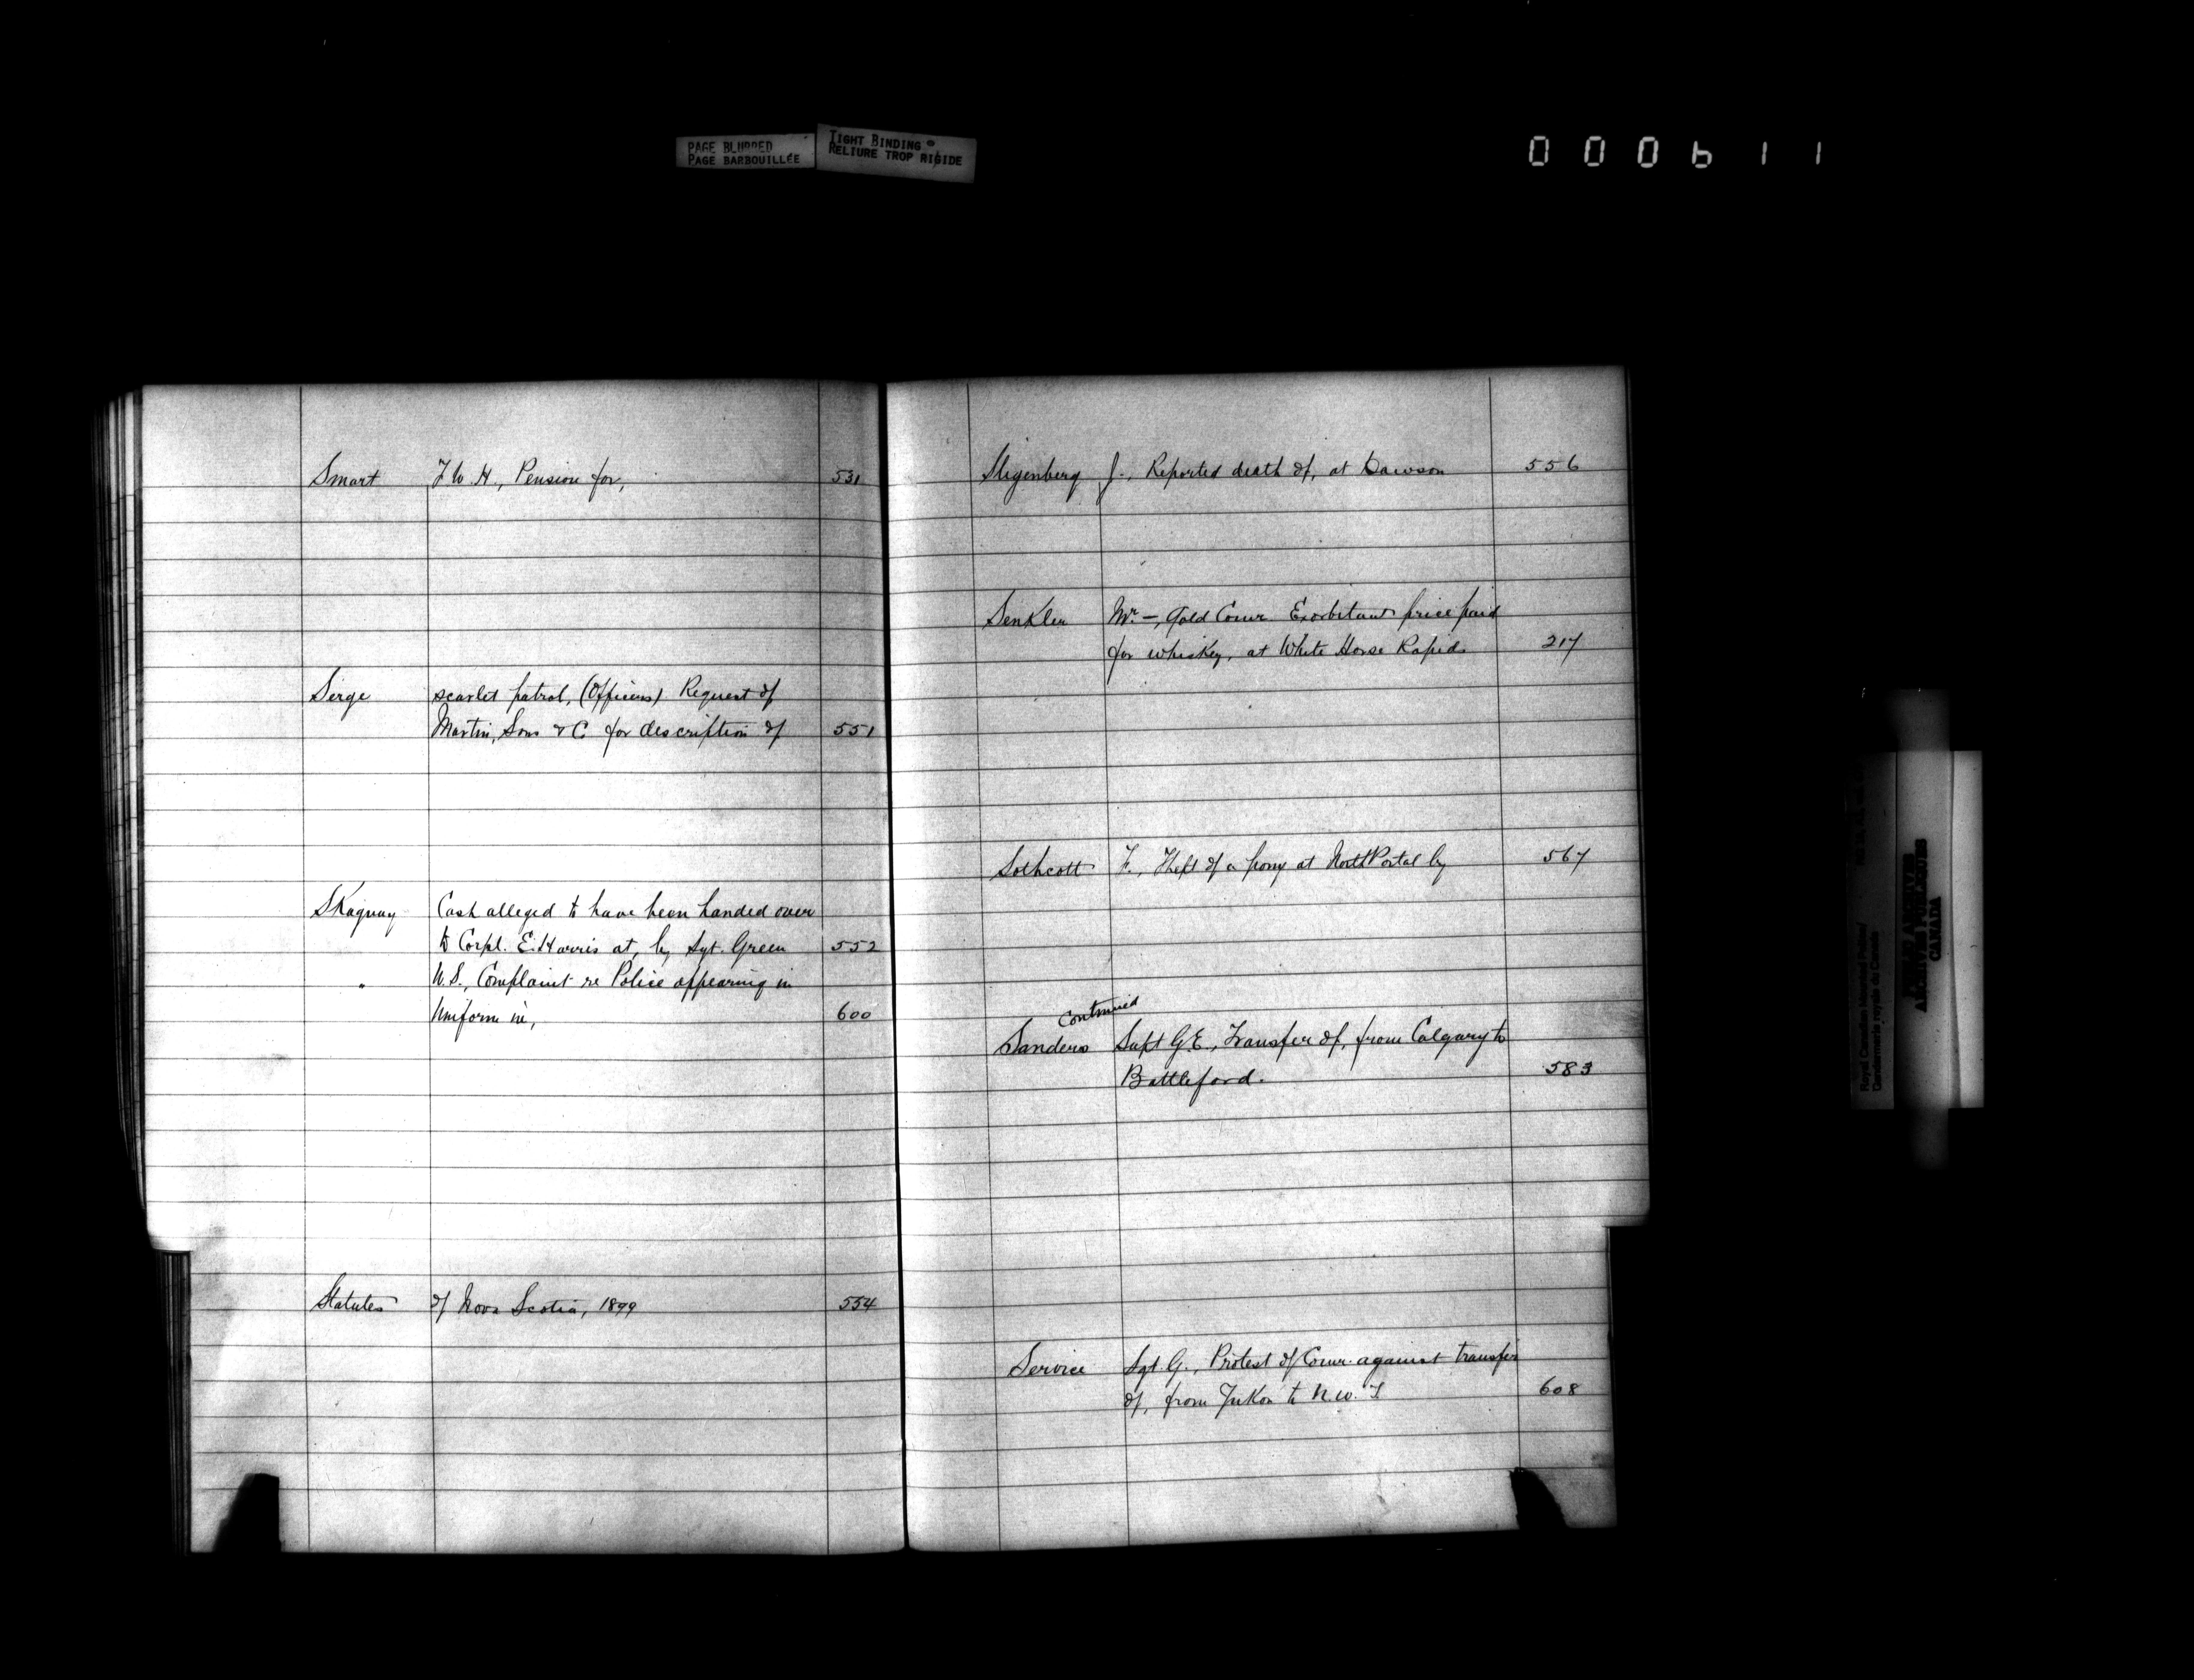 PAGE BLURRED
PAGE BARBOUILLÉE
TIGHT BINDING
RELIURE TROP RIGIDE
000611
Smart F. W. H., Pension for, 531
Serge scarlet patrol, (Officers) Request of
Martin, Sons & C. for description of 551
Skaguay Cash alleged to have been handed over
to Corpl. E. Harris at, by Sgt. Green 552
" U.S., Complaint re Police appearing in
Uniform in, 600
Statutes of Nova Scotia, 1899 554
J., Reported death of, at Dawson 556
Senkler Mr. —, Gold Comr. Exorbitant price paid
for whiskey, at White Horse Rapids 217
Sothcott F., Theft of a pony at North Portal by 567
continued
Sanders Supt G.E., Transfer of, from Calgary to
Battleford. 583
Service Sgt. G., Protest of Comr. against transfer
of, from Yukon to N.W.T 608
Royal Canadian Mounted Police/
Gendarmerie royale du Canada
PUBLIC ARCHIVES
ARCHIVES PUBLIQUES
CANADA